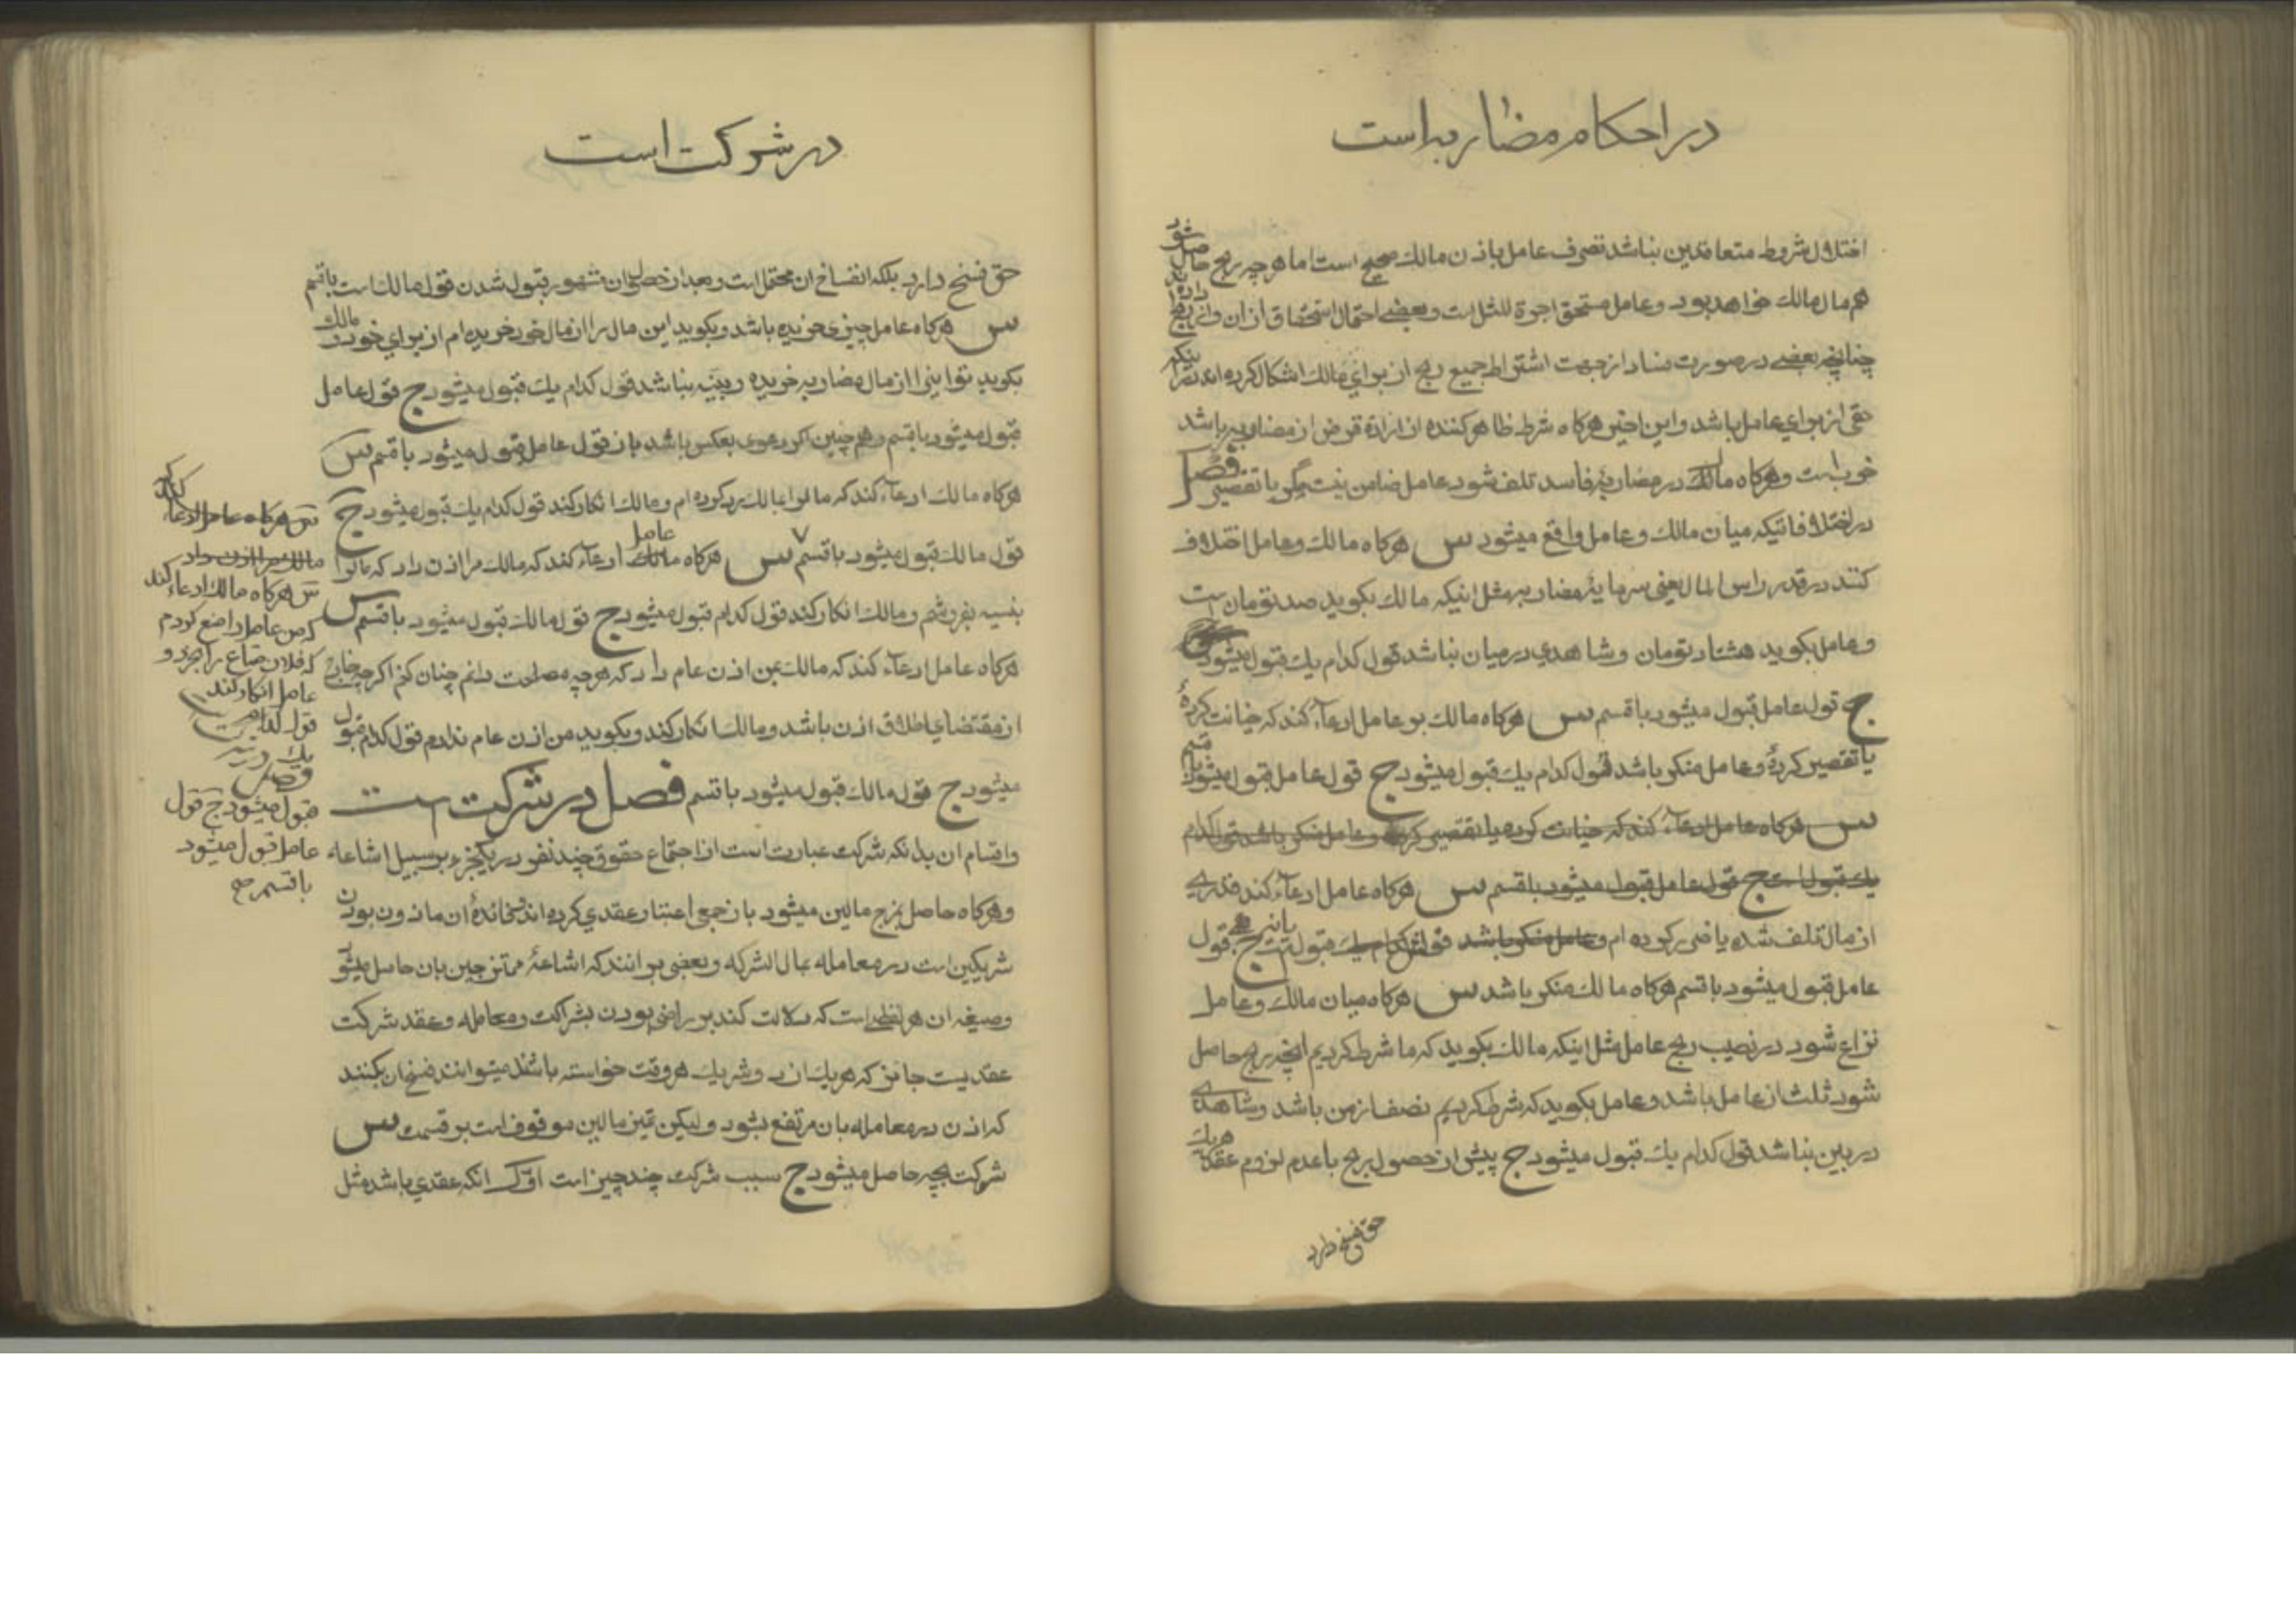 در احکام مضاربه است
اختلال شروط متعاقدین نباشد تصرف عامل باذن مالک صحیح است اما هر چه ربح حاصل شود
هم مال مالک خواهد بود و عامل مستحق اجرة المثل است و بعضی احتمال استحقاق از ان
چنانچه بعضی در صورت فساد از جهت اشتراط جمیع ربح از برای مالک اشکال کرده اند
حقی از برای عامل باشد و این اخیر هرگاه شرط ظاهر کننده از ارادۀ قرض از مضاربه باشد
خوب است و هرگاه مال در مضاربۀ فاسد تلف شود عامل ضامن نیست مگر با تقصیر فصل
در اختلافاتیکه میان مالک و عامل واقع میشود س هرگاه مالک و عامل اختلاف
کنند در قدر راس المال یعنی سرمایۀ مضاربه مثل اینکه مالک بکوید صد تومان است
و عامل بکوید هشتاد تومان و شاهدی در میان نباشد قول کدام یک قبول میشود
ج قول عامل قبول میشود با قسم س هرگاه مالک بر عامل ادعاء کند که خیانت کردۀ
یا تقصیر کردۀ و عامل منکر باشد قول کدام یک قبول میشود ج قول عامل قبول میشود با قسم
س هرگاه عامل ادعاء کند که خیانت کرده یا تقصیر کرده و عامل منکر باشد قول کدام
یک قبول است ج قول عامل قبول میشود با قسم س هرگاه عامل ادعاء کند قدری
از مال تلف شده یا ضرر کرده ام و عامل منکر باشد قولش کدام یک قبول است یا نه ج قول
عامل قبول میشود با قسم هرگاه مالک منکر باشد س هرگاه میان مالک و عامل
نزاع شود در نصیب ربح عامل مثل اینکه مالک بکوید که ما شرط کردیم انچه ربح حاصل
شود ثلث از عامل باشد و عامل بکوید که شرط کردیم نصف از من باشد و شاهدی
در بین نباشد قول کدام یک قبول میشود ج پیش از حصول ربح با عدم لزوم عقد هر یک
حق فسخ دارد
در شرکت است
حق فسخ دارد بلکه انفساخ ان محتمل است و بعد از حصول ان مشهور قبول شدن قول مالک است با قسم
س هرگاه عامل چیزی خریده باشد و بکوید این مال را از مال خود خریده ام از برای خود و مالک
بکوید تو اینرا از مال مضاربه خریده و بینه نباشد قول کدام یک قبول میشود ج قول عامل
قبول میشود با قسم و هم چنین اکر دعوی بعکس باشد باز قول عامل قبول میشود با قسم س
هرگاه مالک ادعاء کند که مالرا بمالک رد کرده ام و مالک انکار کند قول کدام یک قبول میشود ج
قول مالک قبول میشود با قسم س هرگاه مالک عامل ادعاء کند که مالک مرا اذن داد که مالرا
بنسیه بفروشم و مالک انکار کند قول کدام قبول میشود ج قول مالک قبول میشود با قسم س
هرگاه عامل ادعاء کند که مالک بمن اذن عام داد که هر چه مصلحت دانم چنان کنم اکر چه خارج
از مقتضای اطلاق اذن باشد و مالک انکار کند و بکوید من اذن عام ندادم قول کدام قبول
میشود ج قول مالک قبول میشود با قسم فصل در شرکت است
و اقسام ان بدانکه شرکت عبارت است از اجتماع حقوق چند نفر در یکچیز بر سبیل اشاعه
و هرگاه حاصل بمزج مالین میشود باز جمعی اعتبار عقدی کرده اند که فائدۀ ان ماذون بودن
شریکین است در معامله بمال الشرکه و بعضی بر انند که اشاعۀ ممتزجین بان حاصل میشود
و صیغه ان هر لفظی است که دلالت کند بر راضی بودن بشراکت و معامله و عقد شرکت
عقدیست جائز که هر یک از دو شریک هر وقت خواسته باشند میتوانند فسخ ان بکنند
که اذن در معامله بان مرتفع بشود و لیکن تمیز مالین موقوف است بر قسمت س
شرکت بچه حاصل میشود ج سبب شرکت چند چیز است اول انکه عقدی باشد مثل
س هرگاه عامل ادعاء کند که
مالک مرا اذن داد
س هرگاه مالک ادعاء کند
که من عامل را منع کردم
که فلان متاع را نخرد و
عامل انکار کند
قول کدام
یک
قبول میشود ج قول
عامل قبول میشود
با قسم صح